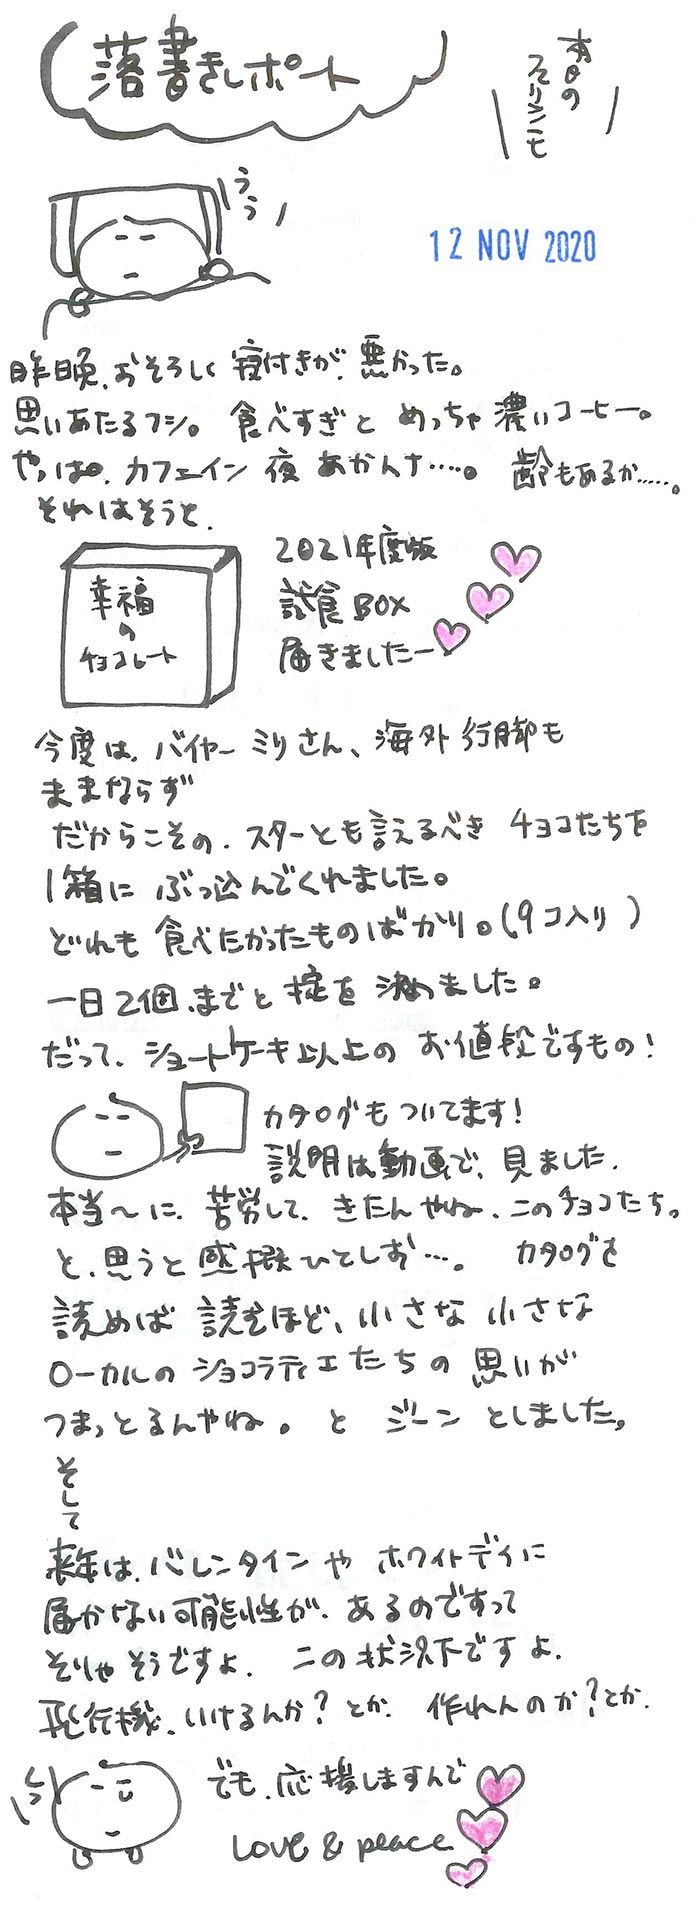 落書きレポート
本日の
スリランモ
12 NOV 2020
うぅ
昨日晩、おそろしく 寝付きが、悪かった。
思いあたるフシ。 食べすぎと めっちゃ 濃いコーヒー。
やっぱ。カフェイン 夜 あかんナ‥‥。 齢もあるか‥‥。
それはそうと、
幸福
の
チョコレート
2021年度版
試食BOX
届きましたー
今度は、バイヤー ミリさん、海外 行脚も
ままならず
だからこその、スターとも言えるべき チョコたちを
1箱に ぶっ込んでくれました。
どれも 食べたかったものばかり。(9コ入り)
一日2個、までと 掟を 決めました。
だって、ショートケーキ以上の お値段ですもの!
カタログも ついてます!
説明は動画で、見ました。
本当〜に、苦労して、きたんやね、このチョコたち。
と、思うと 感慨ひとしお‥‥。 カタログを
読めば 読むほど、小さな 小さな
ローカルの ショコラティエたちの 思いが
つまっとるんやね。 と ジーン としました。
そして
来年は、バレンタインや ホワイトデイに
届かない可能性が、あるのですって
そりゃ そうですよ、 この状況下ですよ、
飛行機、いけるんか?とか、 作れんのか?とか、
でも、応援しますんで
Love & peace